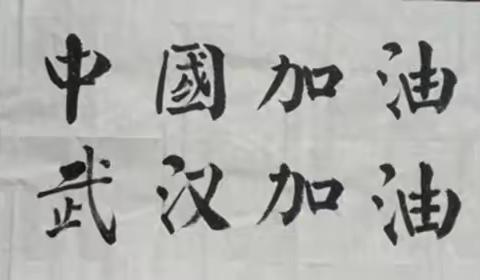 中國加油
武汉加油